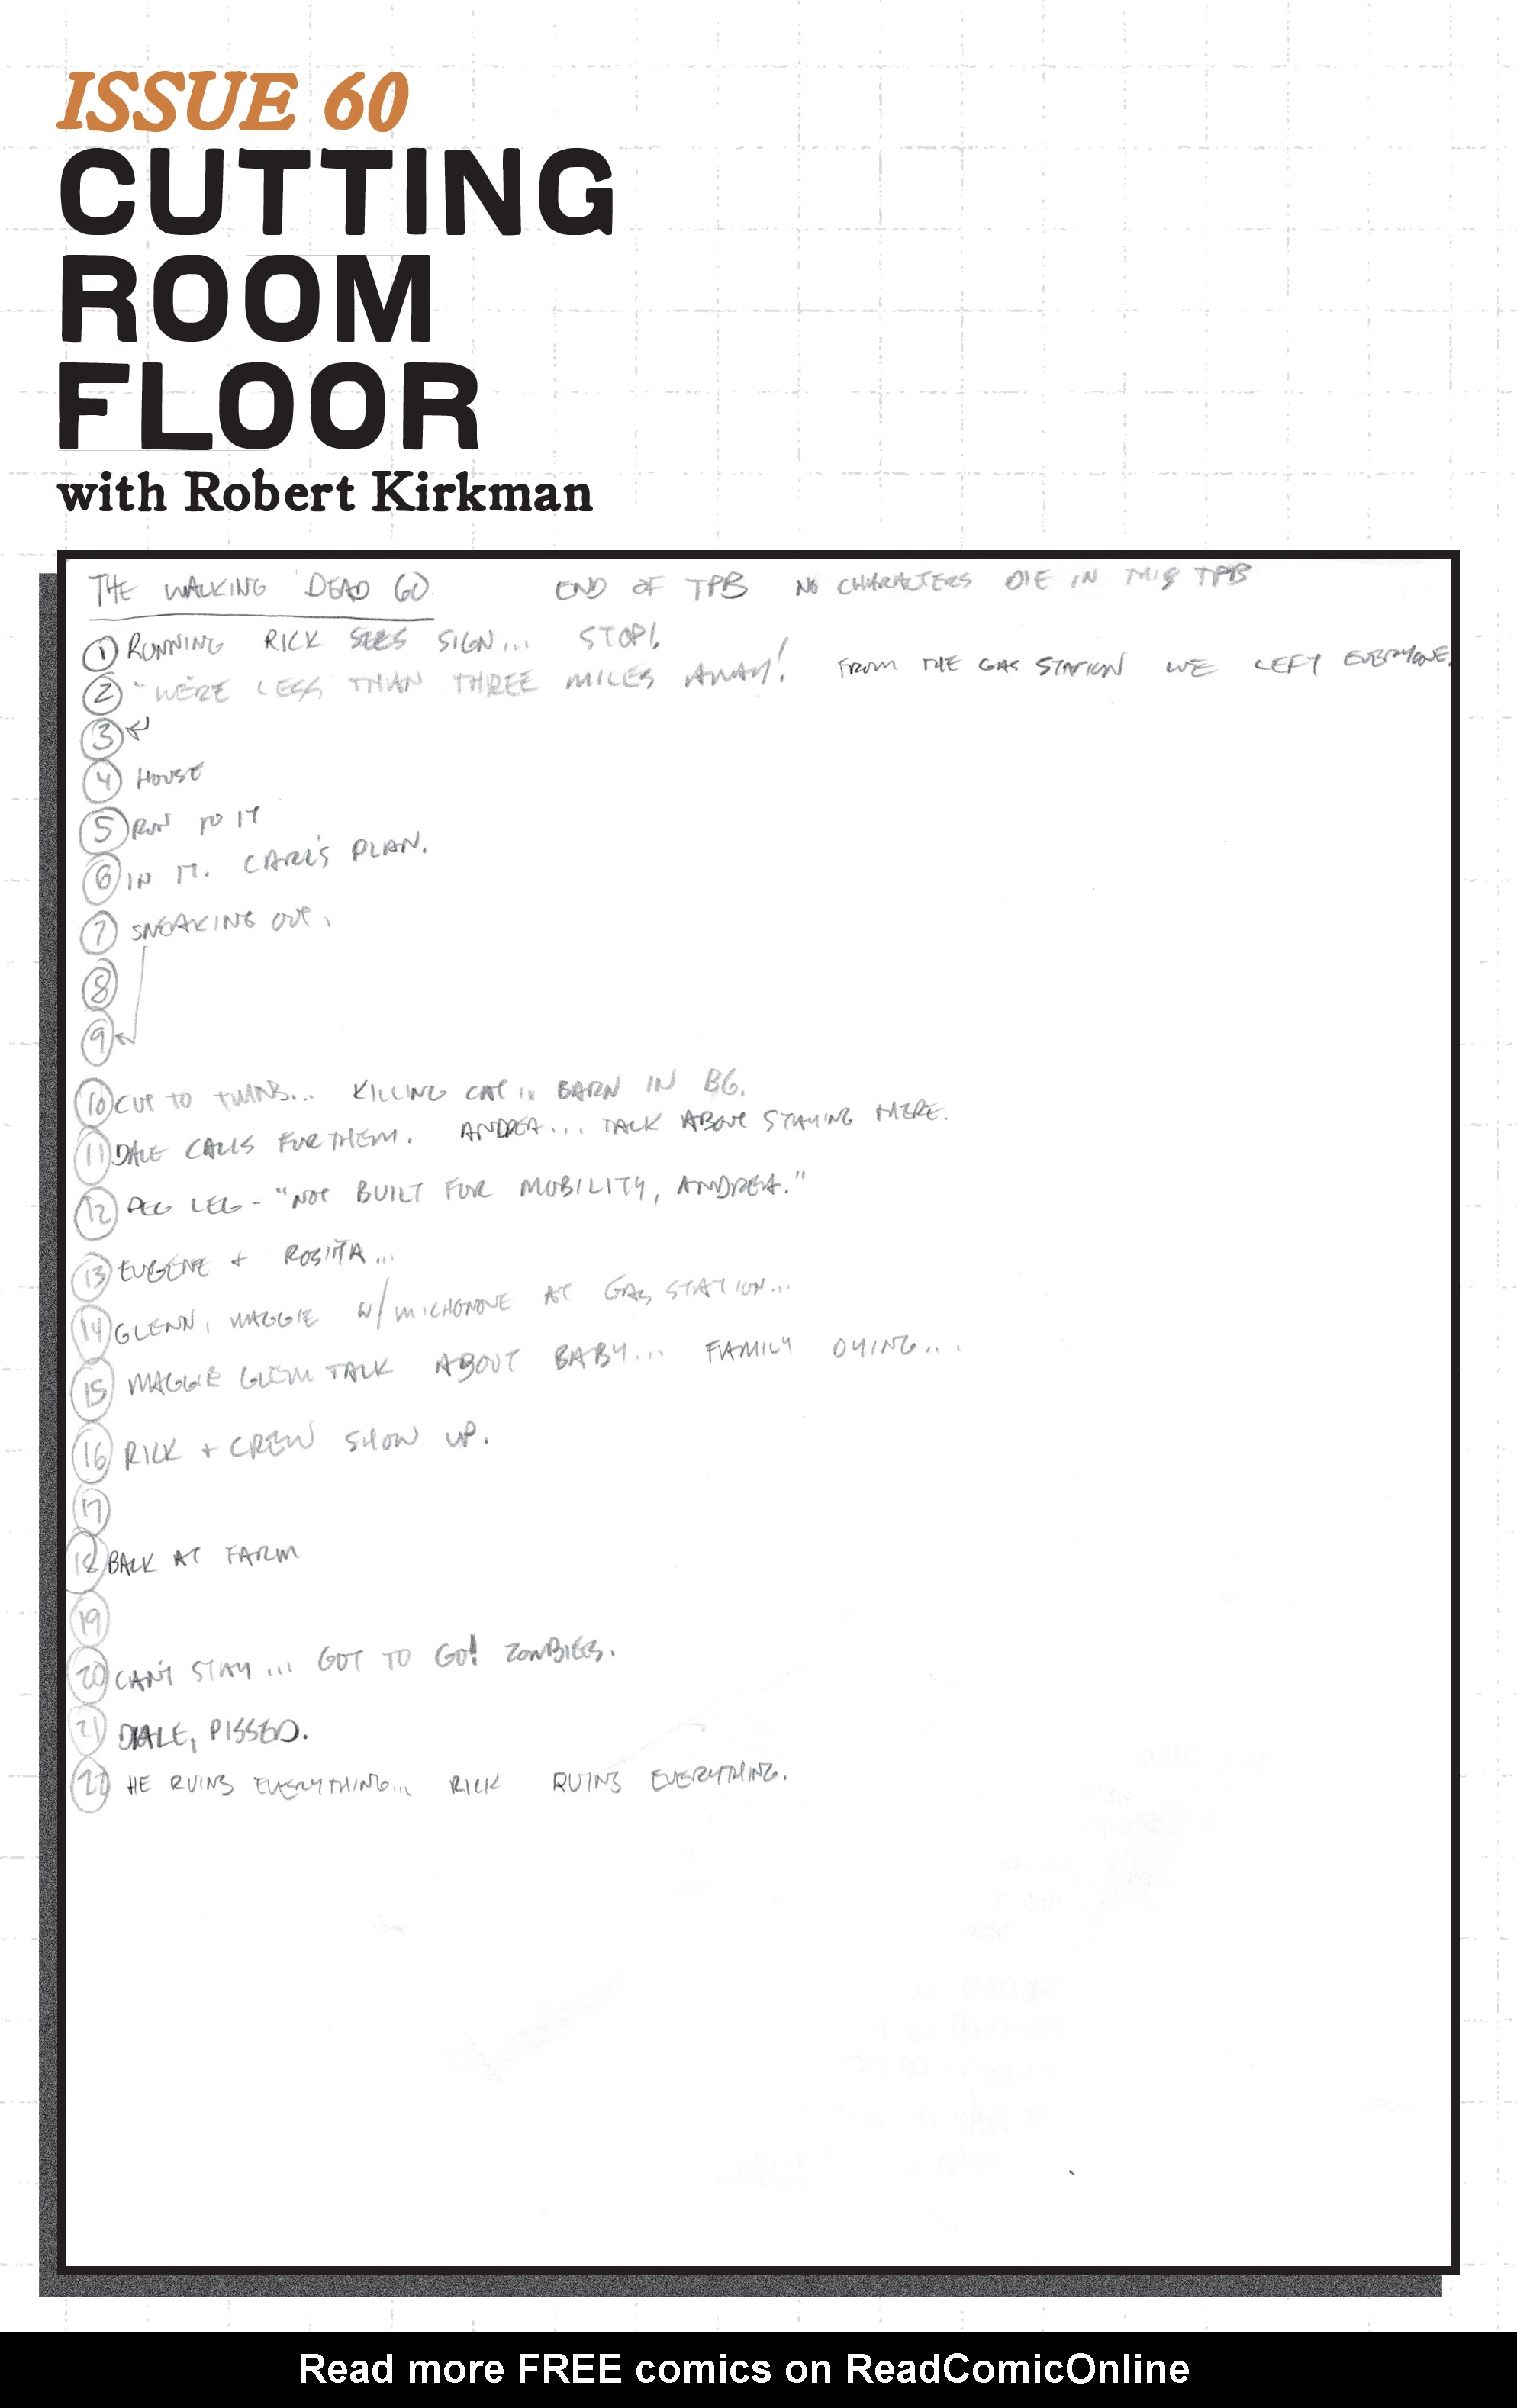 ISSUE 60
CUTTING
ROOM
FLOOR
with Robert Kirkman
THE WALKING DEAD 60 END OF TPB NO CHARACTERS DIE IN THIS TPB
1 RUNNING RICK SEES SIGN... STOP!
2 "WE'RE LESS THAN THREE MILES AWAY! FROM THE GAS STATION WE LEFT EVERYONE.
3
4 HOUSE
5 RUN TO IT
6 IN IT. CARL'S PLAN.
7 SNEAKING OUT.
8
9
10 CUT TO TWINS... KILLING CAT... BARN IN BG.
11 DALE CALLS FOR THEM. ANDREA... TALK ABOUT STAYING HERE.
12 PEG LEG - "NOT BUILT FOR MOBILITY, ANDREA."
13 EUGENE + ROSITA...
14 GLENN, MAGGIE W/MICHONNE AT GAS STATION...
15 MAGGIE GLENN TALK ABOUT BABY... FAMILY DYING...
16 RICK + CREW SHOW UP.
17
18 BACK AT FARM
19
20 CAN'T STAY... GOT TO GO! ZOMBIES.
21 DALE, PISSED.
22 HE RUINS EVERYTHING... RICK RUINS EVERYTHING.
Read more FREE comics on ReadComicOnline